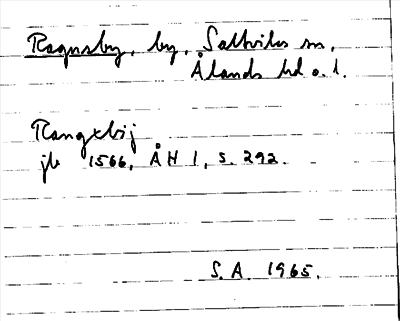 Ragnsby, by, Saltviks sn,
Ålands hd o. l.
Rangxbij
jb 1566, ÅH 1, s. 292.
S. A. 1965.